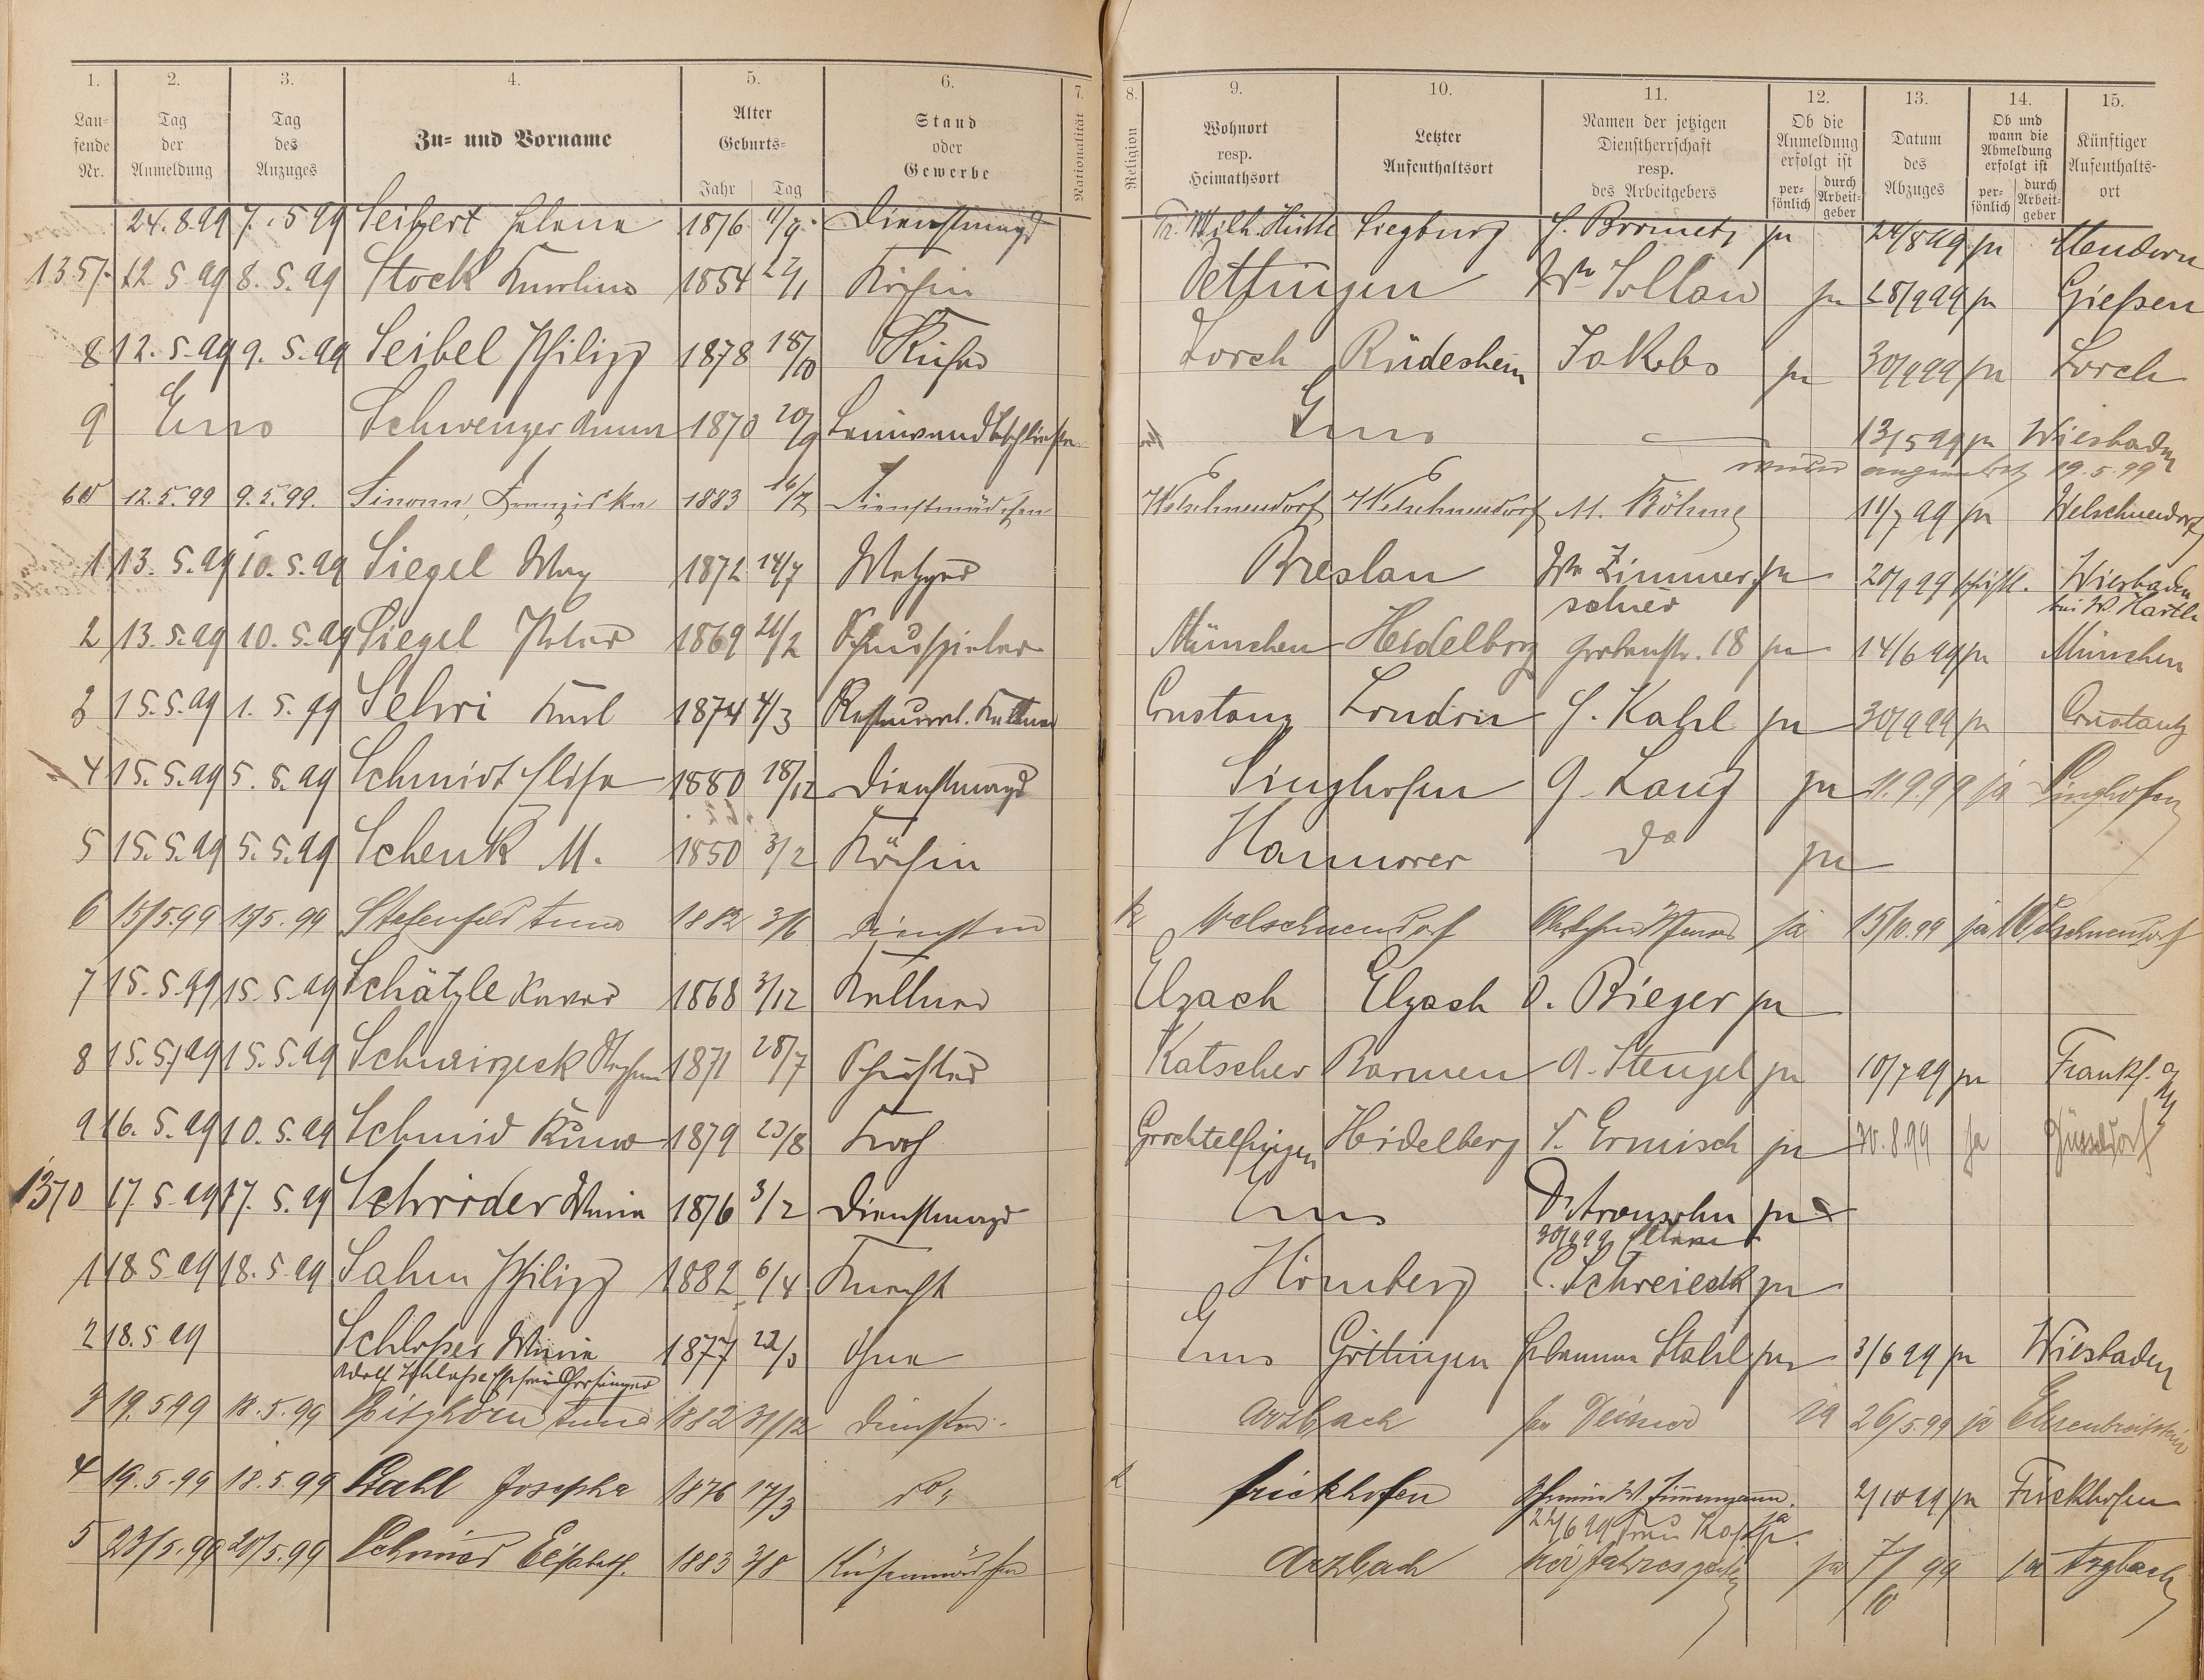 1. 2. 3. 4. 5. 6. 7. 8. 9. 10. 11. 12. 13. 14. 15.
Lau-fende Nr. Tag der Anmeldung Tag des Anzuges Zu- und Vorname Alter Geburts- Jahr Tag Stand oder Gewerbe Nationalität Religion Wohnort resp. Heimathsort Letzter Aufenthaltsort Namen der jetzigen Dienstherrschaft resp. des Arbeitgebers Ob die Anmeldung erfolgt ist per-sönlich durch Arbeit-geber Datum des Abzuges Ob und wann die Abmeldung erfolgt ist per-sönlich durch Arbeit-geber Künftiger Aufenthalts-ort
24.8.99 7.5 99 Seibert Helene 1876 Dienstmagd Fr. Wilh. Hütte Siegburg ja 24/8 99 ja
1357 12 5 99 8. 5. 99 Stock Karoline 1854 27/1 Köchin Oettingen ja 28/9 99 ja Gießen
8 12. 5. 99 9. 5. 99 Seibel Philipp 1878 18/10 Küfer Lorch Rüdesheim Jakobs ja 30/9 99 ja Lorch
9 Ems Schwenzer Anna 1870 20/9 Ems 13/5 99 ja Wiesbaden
wieder angemeldet 19.5.99
60 12.5.99 9.5.99. Franziska 1883 16/7 Dienstmädchen Welschneudorf Welschneudorf M. Böhme 11/7 99 ja Welschneudorf
1 13. 5. 99 10. 5. 99 Siegel Max 1872 14/7 Metzger Breslau Wwe Zimmer- ja 20/9 99 schriftl. Wiesbaden
schied bei W. Hartl
2 13. 5. 99 10. 5. 99 Siegel Peter 1869 21/2 Schauspieler München Heidelberg Grabenstr. 18 ja 14/6 99 ja München
3 15. 5. 99 1. 5. 99 Sehri Karl 1874 4/3 Restaurat. Kellner Constanz London H. Kahl ja 30/9 99 ja Constantz
4 15. 5. 99 5. 5. 99 Schmidt Elise 1880 18/12 Dienstmagd Singhofen G. Lang ja 11.9.99 ja Singhofen
5 15. 5. 99 5. 5. 99 Schenk M. 1850 3/2 Köchin Hannover do ja
6 15/5.99 15/5.99 Anna 1882 3/6 Welschneudorf ja 15/10.99 ja Welschneudorf
7 15. 5. 99 15. 5. 99 Schätzle Xaver 1868 3/12 Kellner Elzach Elzach O. Rieger ja
8 15. 5. 99 15. 5. 99 Stephan 1871 28/7 Schuster Katscher Barmen A. Stengel ja 10/7 99 ja Frankf. a/M
9 16. 5. 99 10. 5. 99 Schmid Kuno 1879 23/8 Koch Heidelberg F. Ermisch ja 30.8.99 ja Düsseldorf
1370 17. 5. 99 17. 5. 99 Schröder Maria 1876 3/2 Dienstmagd Ems Dr. Aronsohn ja
30/9 99 Eltern
1 18 5 99 18. 5. 99 Sahm Philipp 1882 6/4 Knecht Hömberg C. Schreieck ja
2 18. 5 99 Schloßer Maria 1877 22/3 Ohne Ems Göttingen Hebamme Stahl ja 3/6 99 ja Wiesbaden
3 19.5.99 18.5.99 Spitzhorn Anna 1882 31/12 Arzbach ja 26/5.99 ja Ehrenbreitstein
4 19.5.99 18.5.99 Stahl Josepha 1876 17/3 do Frickhofen 2/10 99 ja Frickhofen
5 23/5.99 20/5.99 Schmid Elisabeth. 1883 3/8 Küchenmädchen Arzbach ja 7/10 99 ja Arzbach